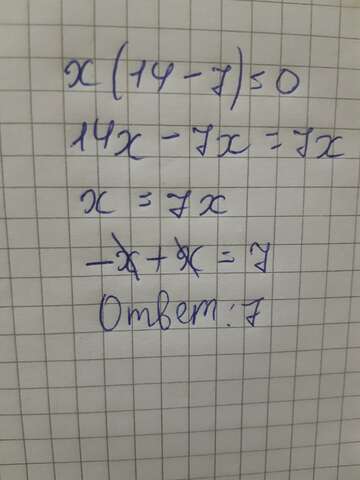 x(14-7)=0
14x-7x=7x
x=7x
-x+x=7
Ответ:7